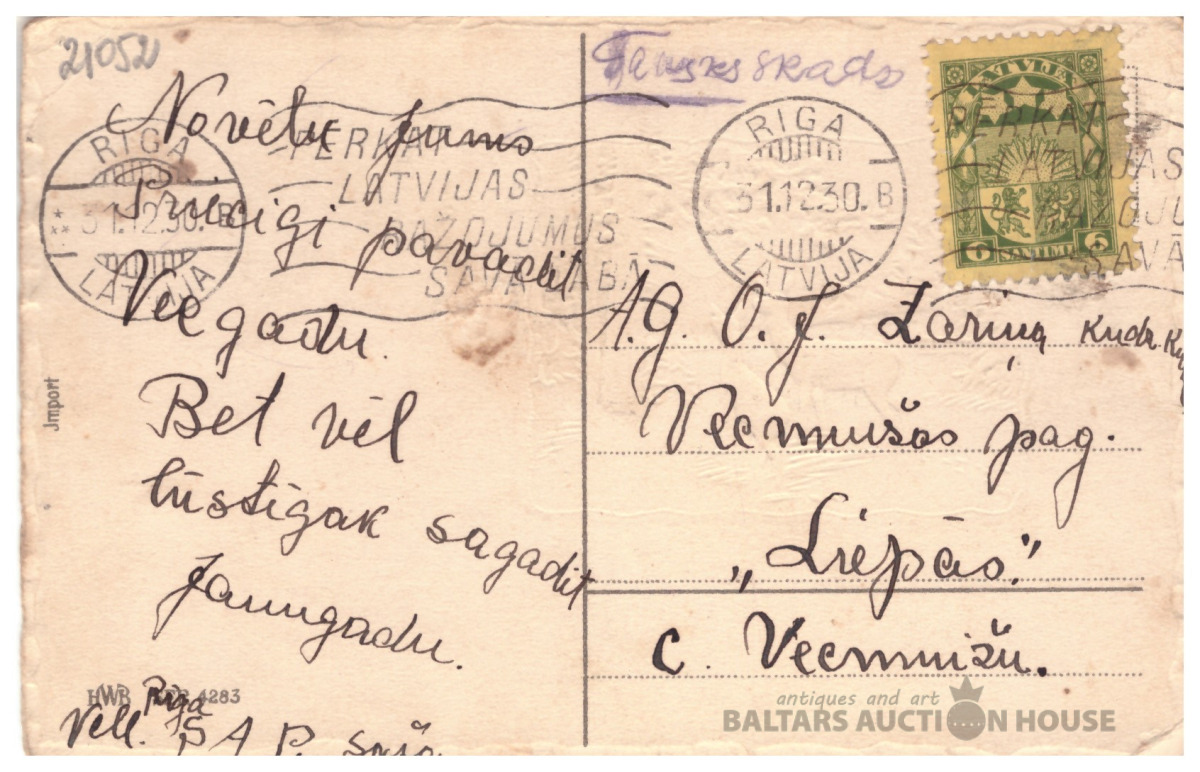 21052
Novēlu Jums
Pricigi pavadit
Vecgadu.
Bet vēl
lūstigak sagadit
Jaungadu.
Rīga
Vell.
HWB 4283
Jmport
RIGA
31.12.30. B
LATVIJA
PĒRKAT
LATVIJAS
RAŽOJUMUS
SAVĀ LABĀ
skads
RIGA
31.12.30. B
LATVIJA
PĒRKAT
LATVIJAS
RAŽOJU
SAVĀ
LATVIJA
6 SANTIMI 6
A.G. O. J. Zariņa kundz.
Vecmuižas pag.
„Liepās."
c. Vecmuižu.
antiques and art
BALTARS AUCTION HOUSE